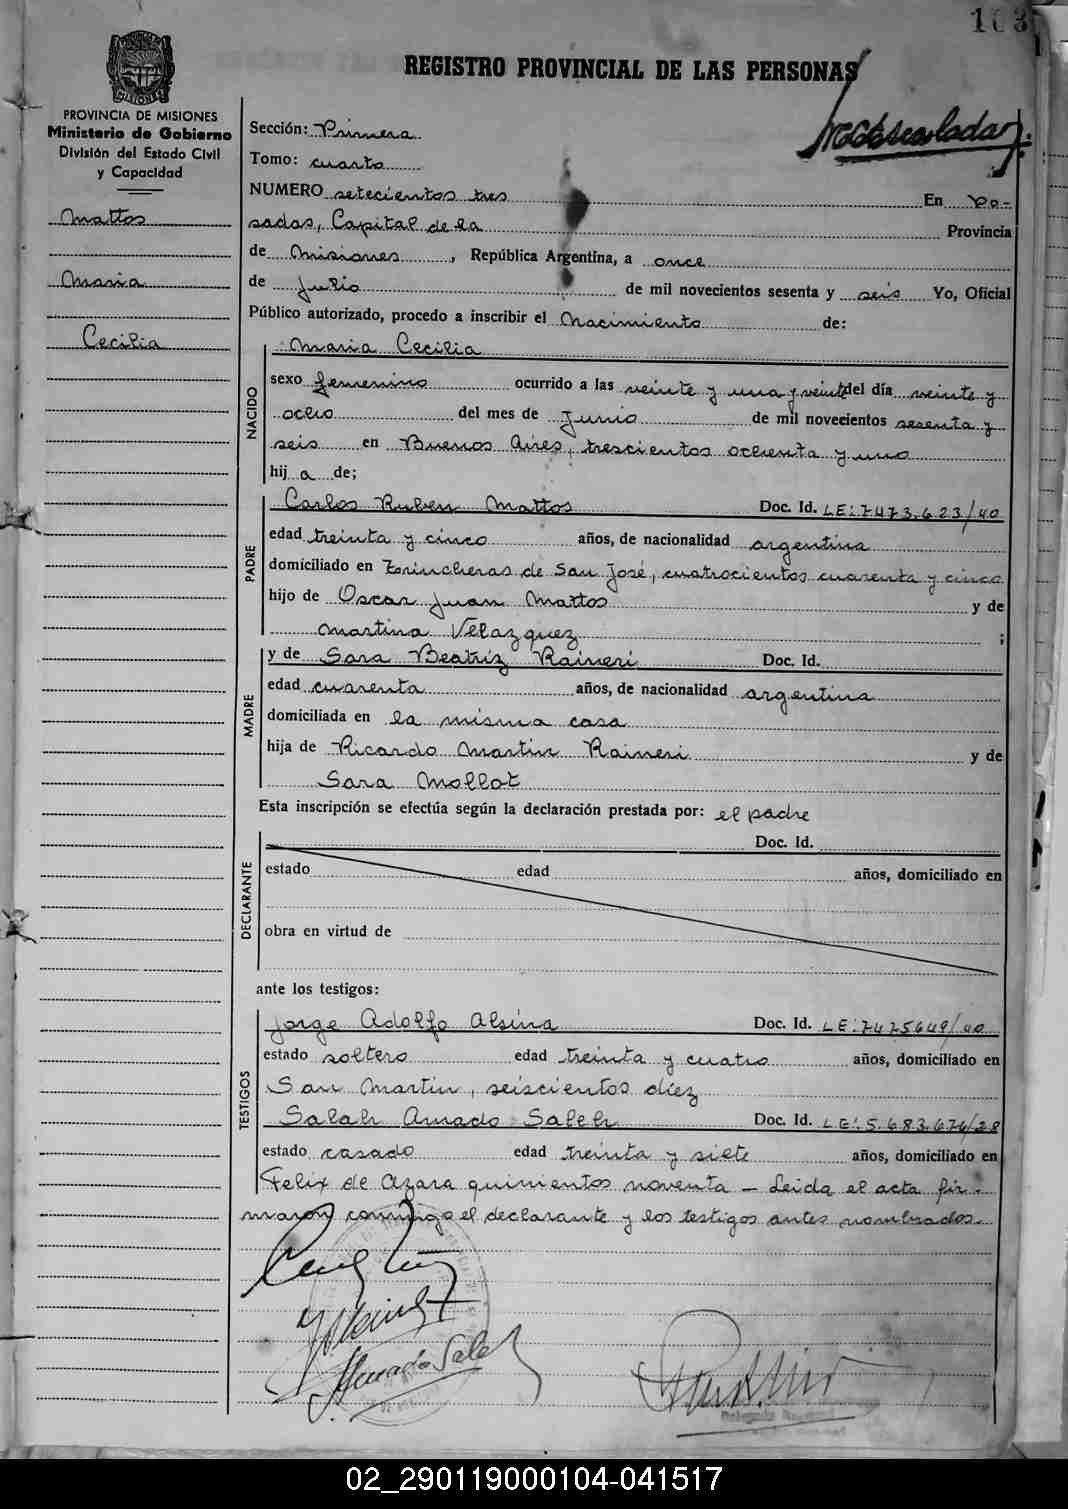 103
REGISTRO PROVINCIAL DE LAS PERSONAS
PROVINCIA DE MISIONES
Ministerio de Gobierno
División del Estado Civil
y Capacidad
Mattos
Maria
Cecilia
Sección: Primera
Tomo: cuarto
NUMERO setecientos tres En Po-
sadas, Capital de la Provincia
de Misiones, República Argentina, a once
de Julio de mil novecientos sesenta y seis Yo, Oficial
Público autorizado, procedo a inscribir el Nacimiento de:
NACIDO
Maria Cecilia
sexo femenino ocurrido a las veinte y una y veinte del día veinte y
ocho del mes de Junio de mil novecientos sesenta y
seis en Buenos Aires, trescientos ochenta y uno
hij a de;
PADRE
Carlos Ruben Mattos Doc. Id. LE: 7473.623/40
edad treinta y cinco años, de nacionalidad argentina
domiciliado en Trincheras de San José, cuatrocientos cuarenta y cinco
hijo de Oscar Juan Mattos y de
Martina Velazquez ;
MADRE
y de Sara Beatriz Raineri Doc. Id.
edad cuarenta años, de nacionalidad argentina
domiciliada en la misma casa
hija de Ricardo Martin Raineri y de
Sara Mollot
Esta inscripción se efectúa según la declaración prestada por: el padre
DECLARANTE
Doc. Id.
estado edad años, domiciliado en
obra en virtud de
ante los testigos:
TESTIGOS
Jorge Adolfo Alsina Doc. Id. LE: 7475649/40
estado soltero edad treinta y cuatro años, domiciliado en
San Martin, seiscientos diez
Salah Amado Saleh Doc. Id. LE: 5.683.676/28
estado casado edad treinta y siete años, domiciliado en
Felix de Azara quinientos noventa — Leida el acta fir-
maron conmigo el declarante y los testigos antes nombrados.
Amado Saleh
02_290119000104-041517